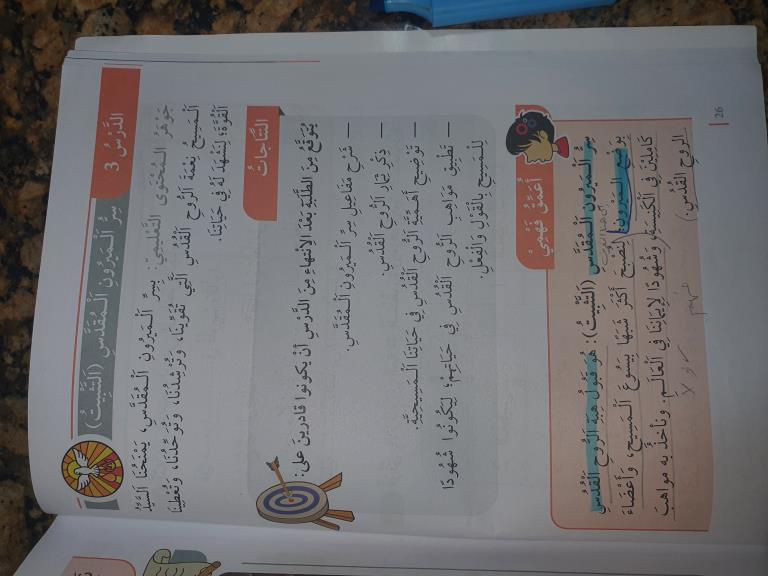 الدَّرْسُ 3
سِرُّ الْمَيْرُونِ الْمُقَدَّسِ (التَّثْبِيتُ)
جَوْهَرُ الْمُحْتَوَى التَّعْلِيمِيِّ: بِسِرِّ الْمَيْرُونِ الْمُقَدَّسِ، يَمْنَحُنَا السَّيِّدُ
الْمَسِيحُ نِعْمَةَ الرُّوحِ الْقُدُسِ الَّتِي تُقَوِّينَا، وَتُرْشِدُنَا، وَتُوَحِّدُنَا، وَتُعْطِينَا
الْقُوَّةَ؛ لِنَشْهَدَ لَهُ فِي حَيَاتِنَا.
النَّتَاجَاتُ
يُتَوَقَّعُ مِنَ الطَّلَبَةِ بَعْدَ الِانْتِهَاءِ مِنَ الدَّرْسِ أَنْ يَكُونُوا قَادِرِينَ عَلَى:
– شَرْحِ مَفَاعِيلِ سِرِّ الْمَيْرُونِ الْمُقَدَّسِ.
– ذِكْرِ ثِمَارِ الرُّوحِ الْقُدُسِ.
– تَوْضِيحِ أَهَمِّيَّةِ الرُّوحِ الْقُدُسِ فِي حَيَاتِنَا الْمَسِيحِيَّةِ.
– تَطْبِيقِ مَوَاهِبِ الرُّوحِ الْقُدُسِ فِي حَيَاتِهِمْ؛ لِيَكُونُوا شُهُودًا
لِلْمَسِيحِ بِالْقَوْلِ وَالْفِعْلِ.
أُعَمِّقُ فَهْمِي
سِرُّ الْمَيْرُونِ الْمُقَدَّسِ (التَّثْبِيتُ): هُوَ قَبُولُ هِبَةِ الرُّوحِ الْقُدُسِ
بِوَضْعِ الْمَيْرُونِ؛ لِنُصْبِحَ أَكْثَرَ شَبَهًا بِيَسُوعَ الْمَسِيحِ، وَأَعْضَاءَ
كَامِلِينَ فِي الْكَنِيسَةِ، وَشُهُودًا لِإِيمَانِنَا فِي الْعَالَمِ. ونأخذُ به مواهبَ
الروحِ القُدُسِ.)
26